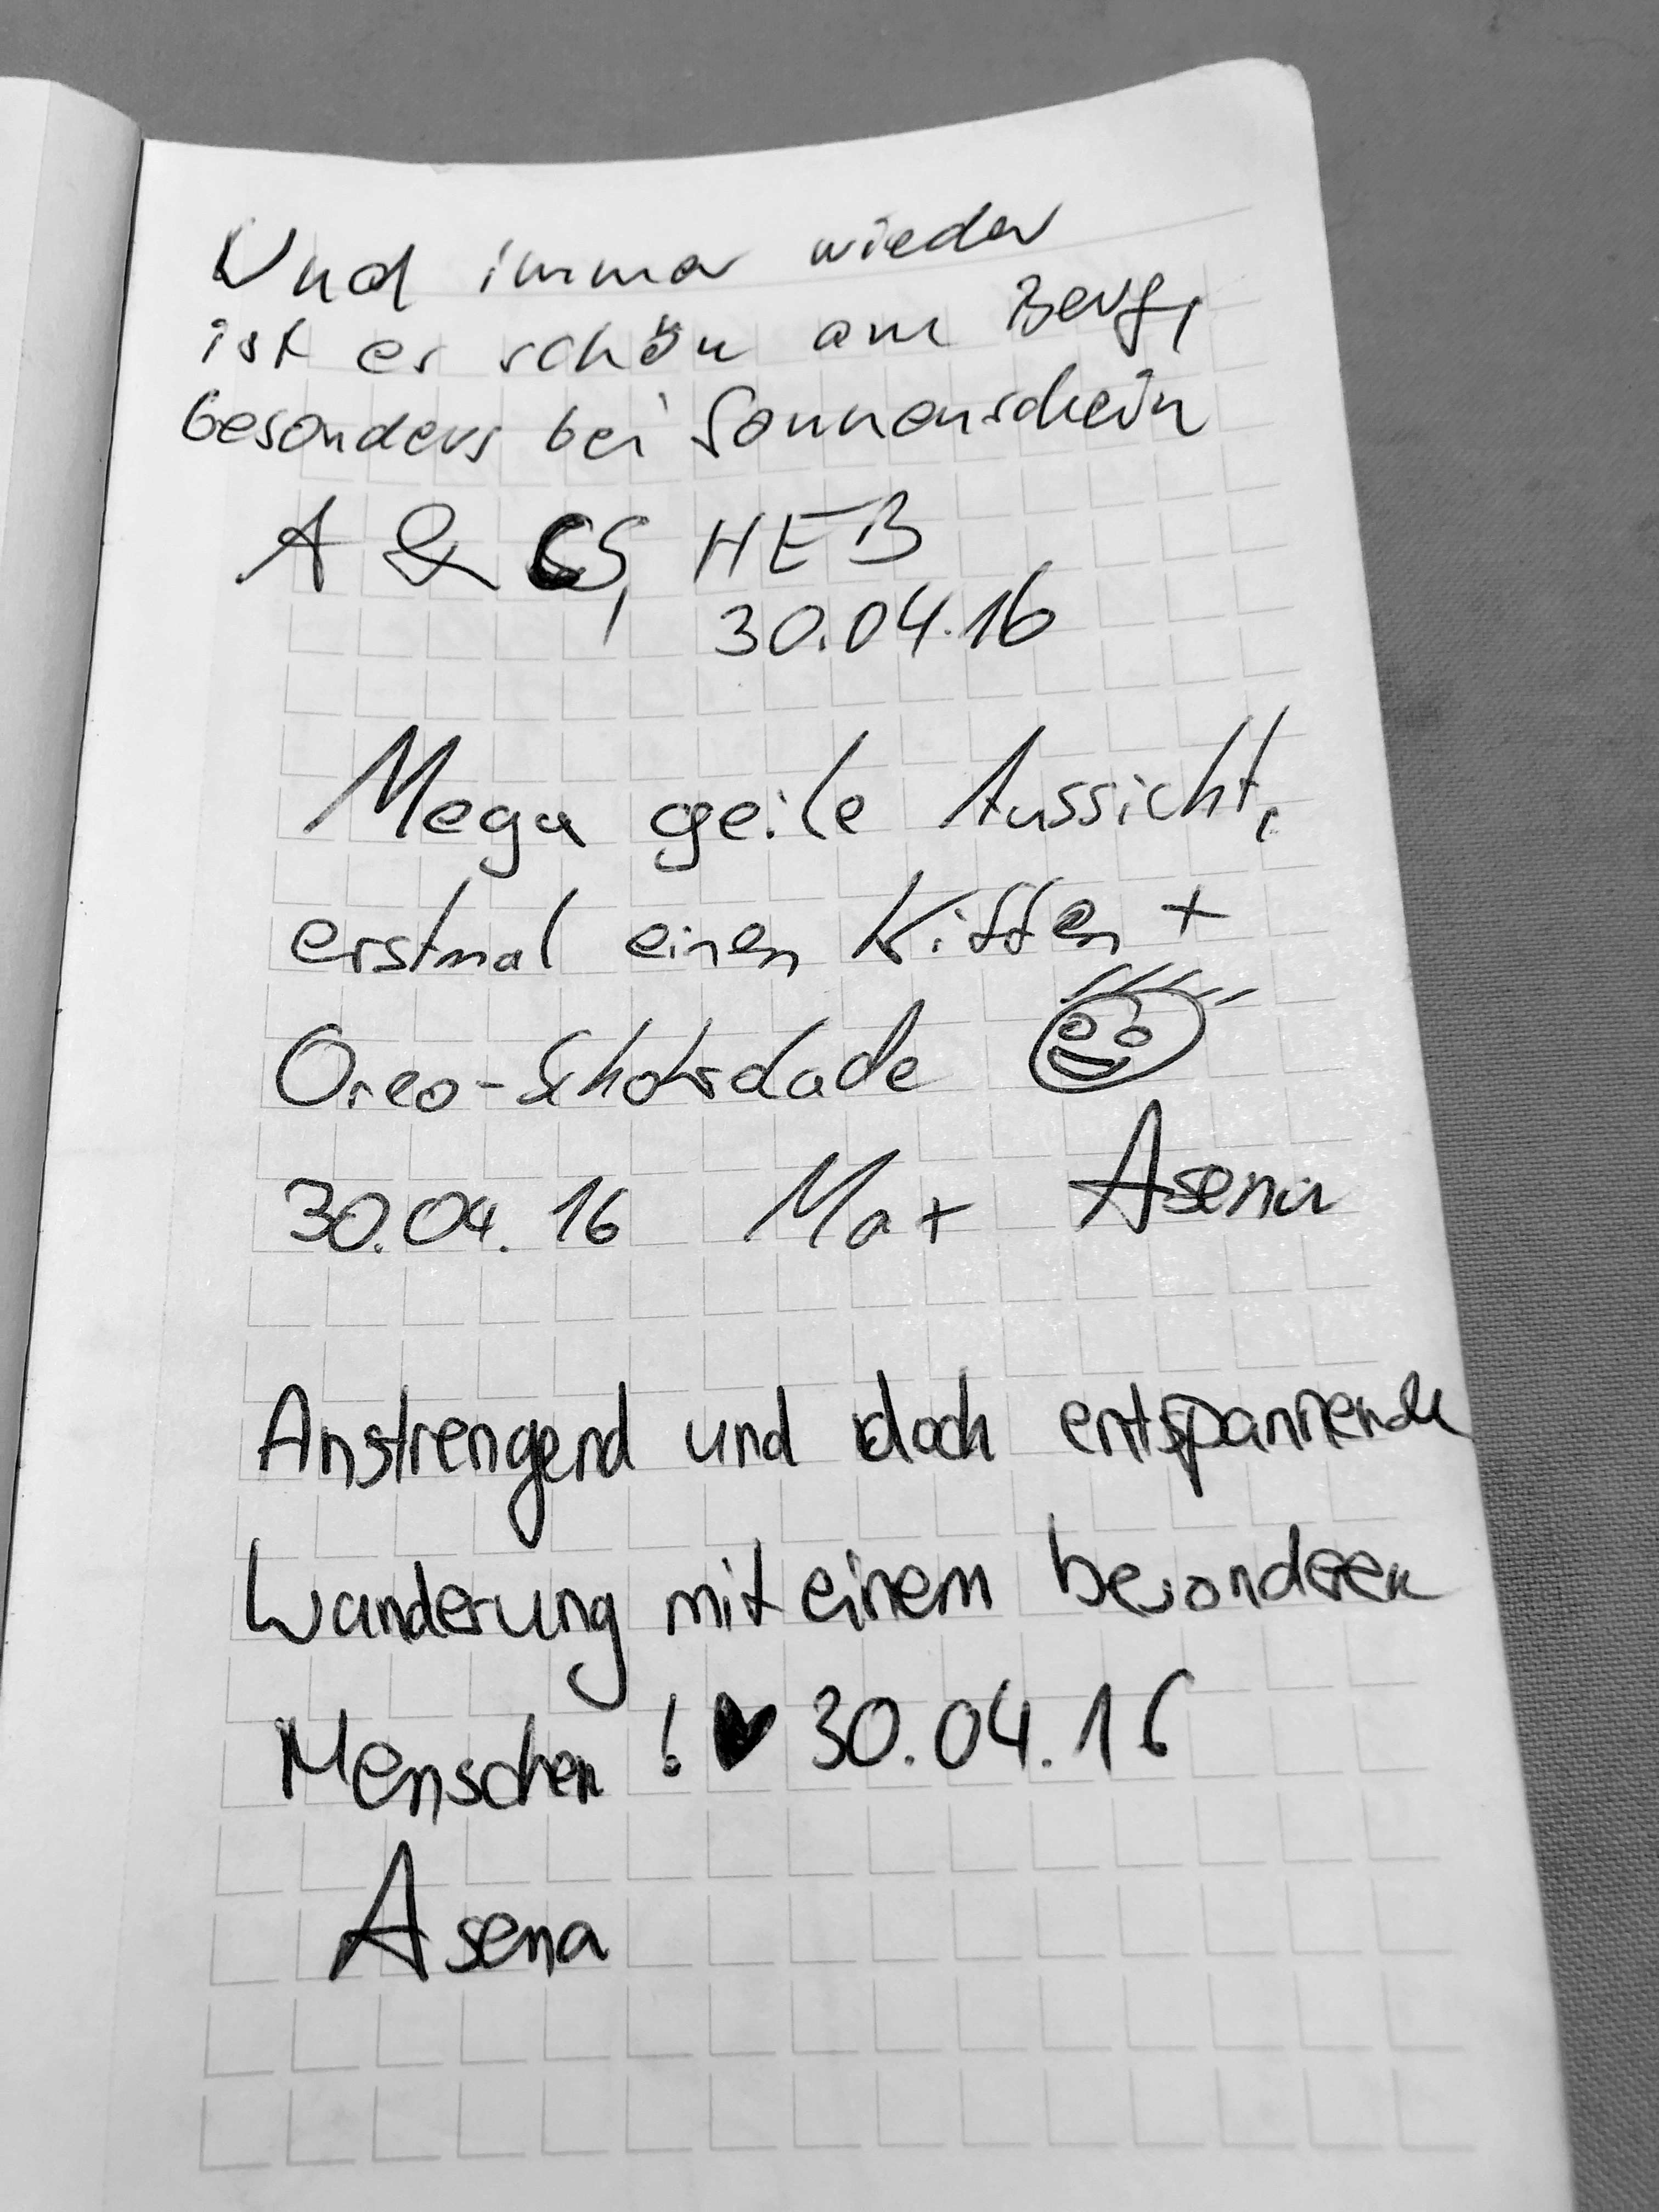 Und immer wieder
ist es schön am Berg,
besonders bei Sonnenschein
A & CS, HEB
30.04.16
Mega geile Aussicht,
erstmal einen Kiffen +
Oreo-Schokolade
30.04.16 Ma+ Asena
Anstrengend und doch entspannende
Wanderung mit einem besonderen
Menschen! ♥ 30.04.16
Asena